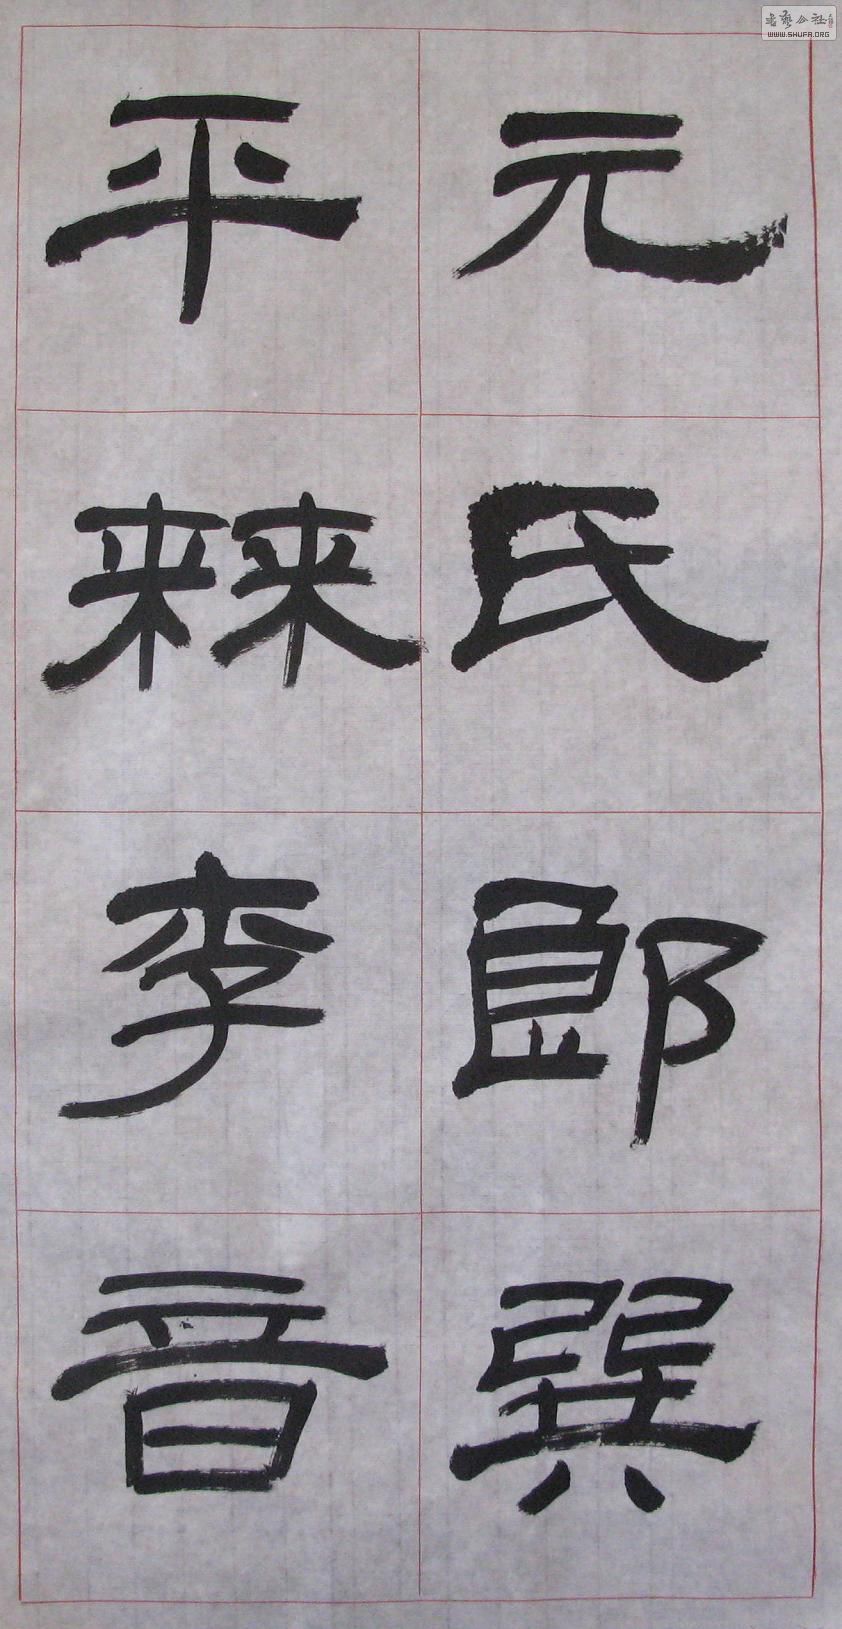 元氏郎巽
平棘李音
書藝公社
WWW.SHUFA.ORG